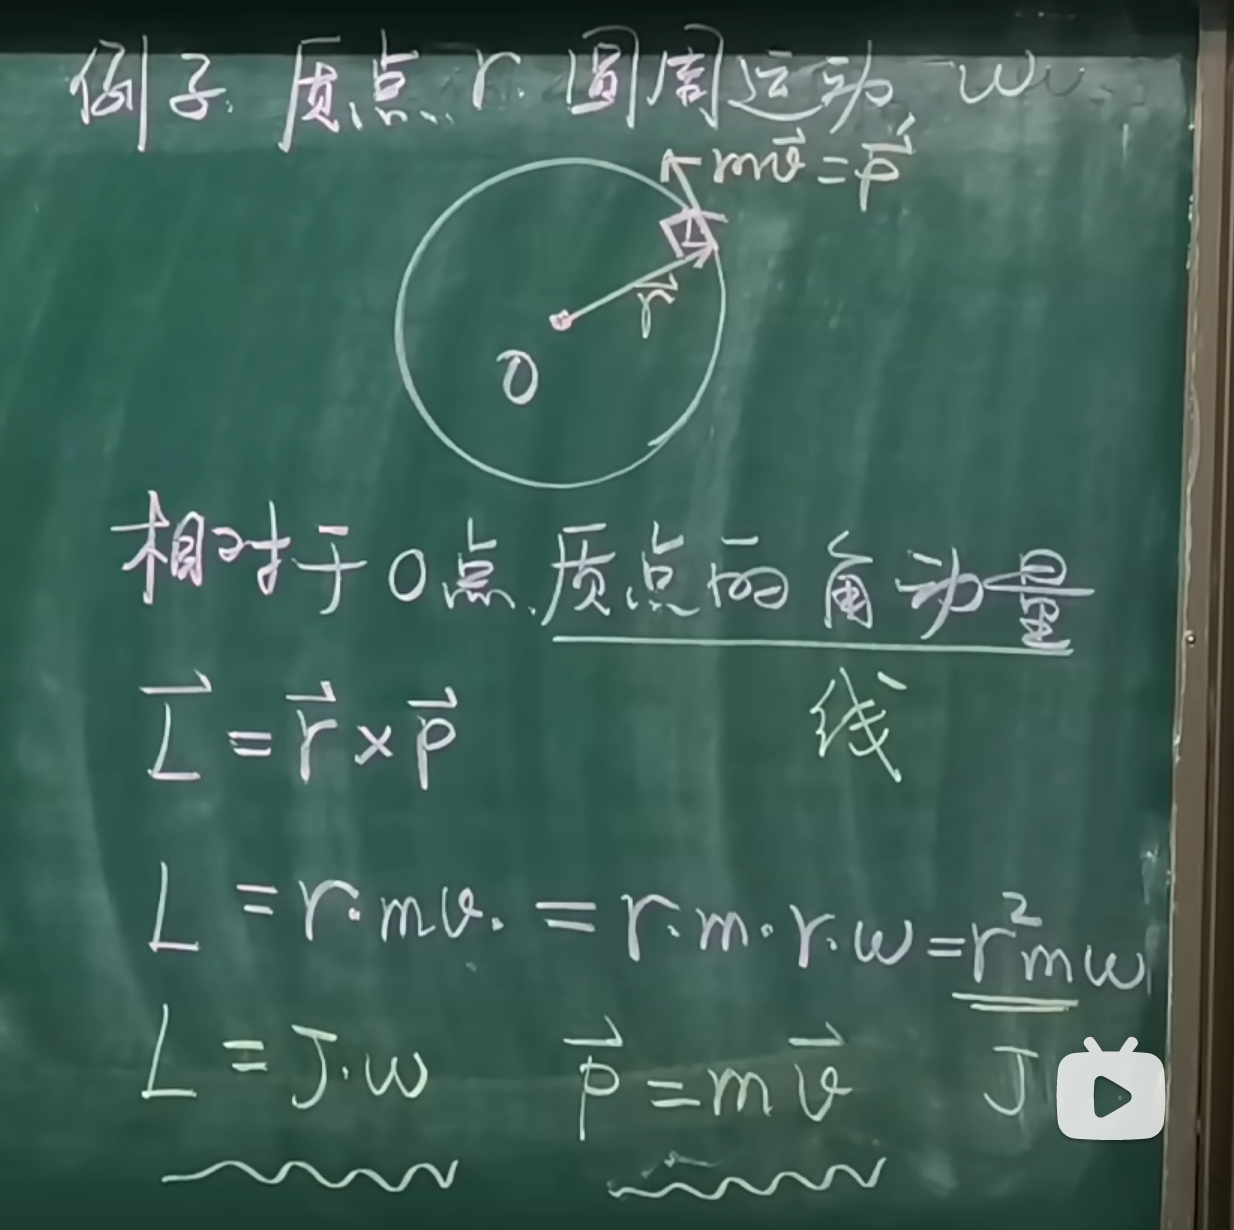 例子. 质点. r. 圆周运动, ω
mv⃗ = p⃗
r⃗
O
相对于O点.质点的角动量
线
L⃗ = r⃗ × p⃗
L = r·mv. = r·m·r·ω = r²mω
L = J·ω p⃗ = mv⃗ J